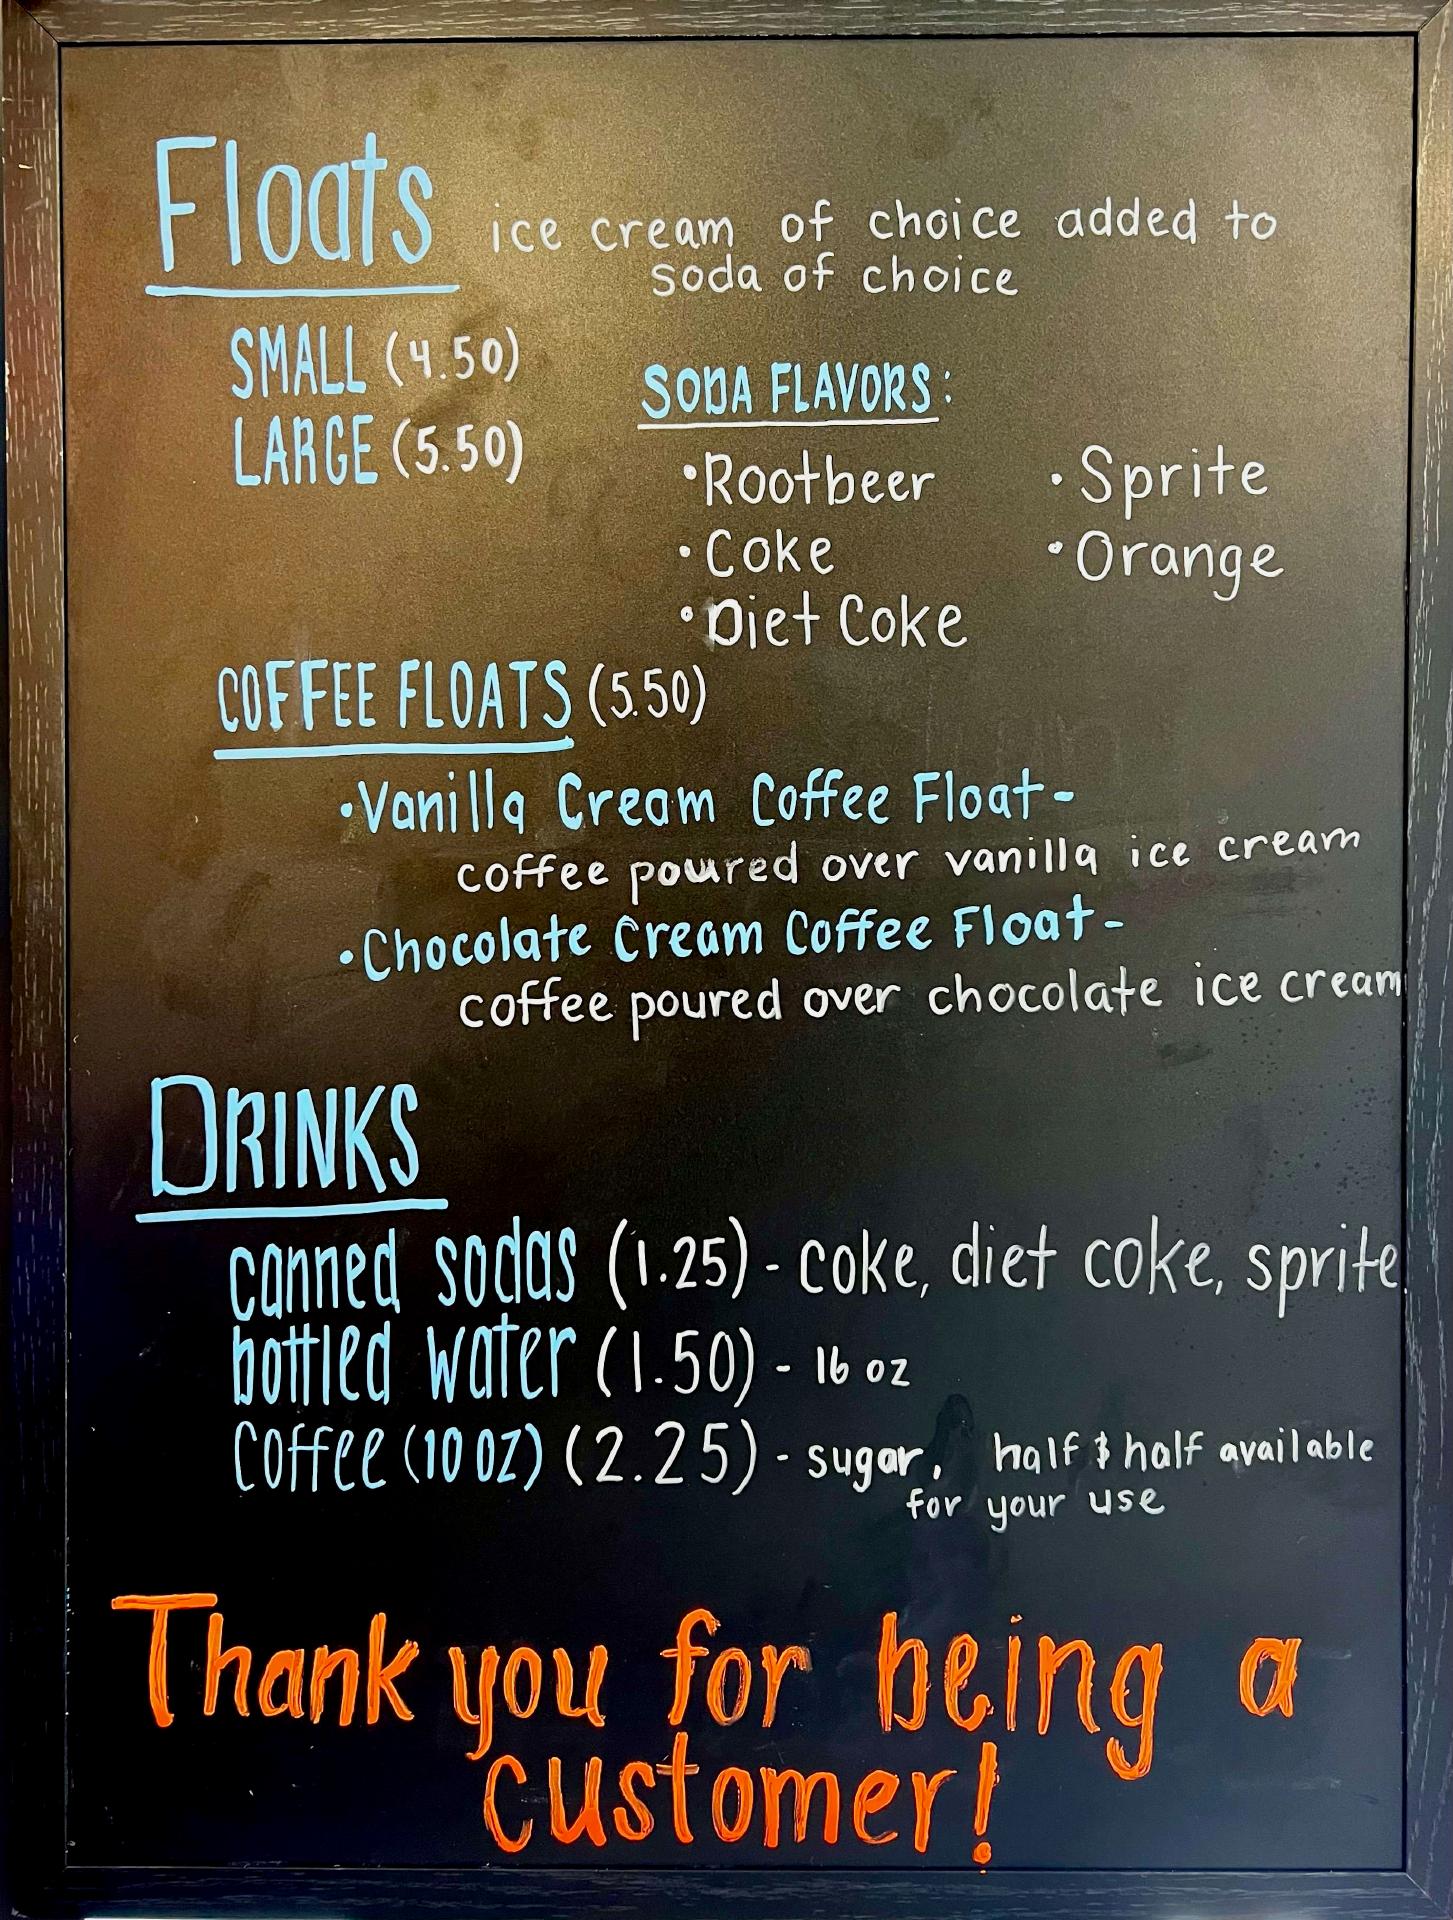 Floats ice cream of choice added to
soda of choice
SMALL (4.50)
LARGE (5.50)
SODA FLAVORS:
• Rootbeer
• Coke
• Diet Coke
• Sprite
• Orange
COFFEE FLOATS (5.50)
• Vanilla Cream Coffee Float-
coffee poured over vanilla ice cream
• Chocolate Cream Coffee Float-
coffee poured over chocolate ice cream
DRINKS
canned sodas (1.25) - coke, diet coke, sprite
bottled water (1.50) - 16 oz
Coffee (10 oz) (2.25) - sugar, half & half available
for your use
Thank you for being a
customer!